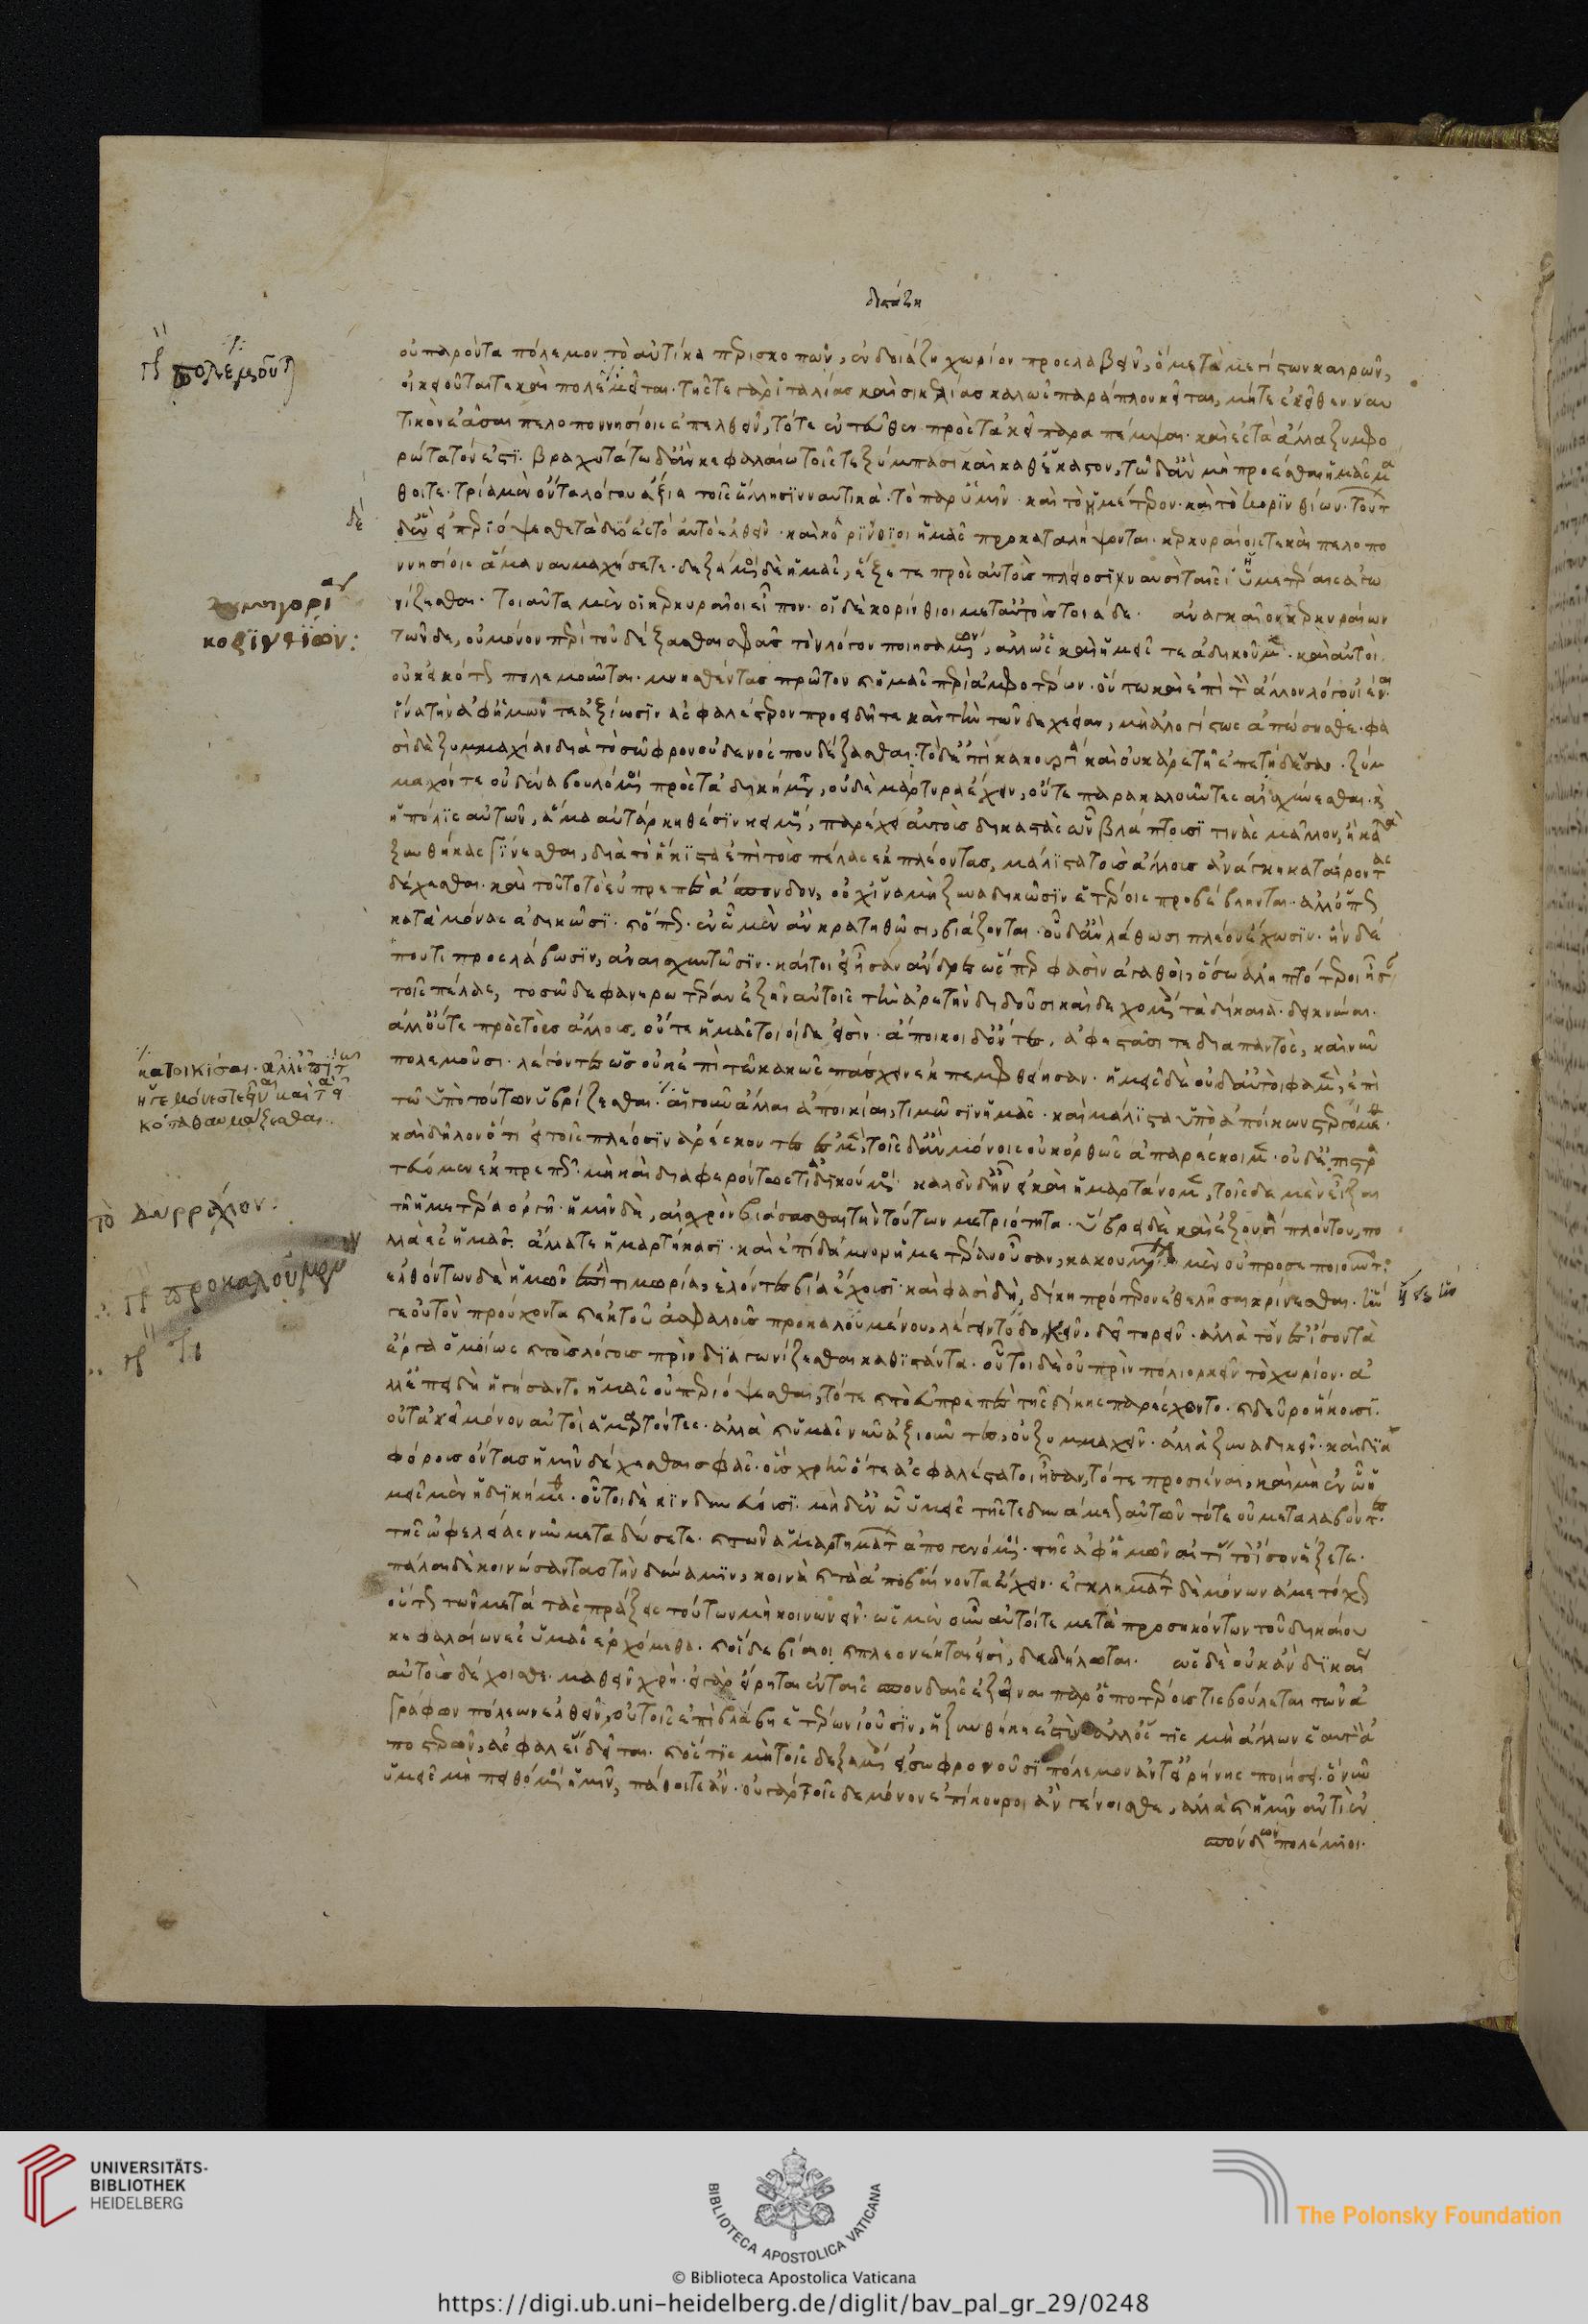 δευτέρα
οὐ παρόντα πόλεμον τὸ αὐτίκα περισκοπῶν, ἐνδοιάζη χωρίον προσλαβεῖν, ὃ μετὰ μεγίστων καιρῶν,
οἰκειοῦταί τε καὶ πολεμεῖται· τῆς τε γὰρ ἰταλίας καὶ σικελίας καλῶς παράπλου κεῖται, μήτε ἐκεῖθεν ναυ
τικὸν ἐᾶσαι πελοποννησίοις ἐπελθεῖν, τό τε ἐντεῦθεν πρὸς τἀκεῖ παραπέμψαι· καὶ ἐς τὰ ἄλλα ξυμφο
ρώτατόν ἐστϊ· βραχυτάτω δἂν κεφαλαίω τοῖς τε ξύμπασι καὶ καθέκαστον, τῶδἂν μὴ προέσθαι ἡμᾶς μά
θοιτε· τρία μὲν ὄντα λόγου ἄξια τοῖς ἕλλησϊν ναυτικὰ· τὸ παρὑμῖν· καὶ τὸ ἡμέτερον· καὶ τὸ κορϊνθίων· τούτ
δὲ εἰ περιόψεσθε τὰ δύο ἐς τὸ αὐτὸ ἐλθεῖν· καὶ κορίνθϊοι ἡμᾶς προκαταλήψονται· κερκυραίοις τε καὶ πελοπο
ννησίοις ἅμα ναυμαχήσετε· δεξάμενοι δὲ ἡμᾶς, ἕξετε πρὸς αὐτοὺς πλείοσϊν ναυσὶ ταῖς ὑμετέραις ἀγω
νίζεσθαι· τοιαῦτα μὲν οἱ κερκυραῖοι εἶπον· οἱ δὲ κορίνθιοι μεταὐτοὺς τοιάδε· ἀναγκαῖον κερκυραίων
τῶνδε, οὐ μόνον περὶ τοῦ δέξασθαι σφᾶς τὸν λόγον ποιησαμένων, ἀλλὡς καὶ ἡμεῖς τε ἀδικοῦμεν· καὶ αὐτοὶ
οὐκ εἰκότως πολεμοῦνται· μνησθέντας πρῶτον καὶ ἡμᾶς περὶ ἀμφοτέρων· οὕτω καὶ ἐπὶ τὸν ἄλλον λόγον ἰέναι
ἵνα τὴν ἀφἡμῶν τε ἀξίωσϊν ἀσφαλέστερον προειδῆτε καὶ τὴν τῶνδε χρείαν, μὴ ἀλογίστως ἀπώσησθε· φα
σὶ δὲ ξυμμαχίαν διὰ τὸ σῶφρον οὐδενός που δέξασθαι· τὸ δἐπὶ κακουργίᾳ καὶ οὐκ ἀρετῆ ἐπετήδευσαν· ξύμ
μαχόν τε οὐδένα βουλόμενοι πρὸς τἀδικήματα, οὐδὲ μάρτυρα ἔχειν, οὔτε παρακαλοῦντες αἰσχύνεσθαι· καὶ
ἡ πόλϊς αὐτῶν, ἅμα αὐτάρκη θέσϊν κειμένη, παρέχει αὐτοὺς δικαστὰς ὧν βλάπτουσί τινὰς μᾶλλον, ἢ κατὰ
ξυνθήκας γίνεσθαι, διὰ τὸ ἥκϊστα ἐπὶ τοὺς πέλας ἐκπλέοντας, μάλϊστα τοὺς ἄλλους ἀνάγκη καταίροντας
δέχεσθαι· καὶ τοῦτο τὸ εὐπρεπὲς ἄσπονδον, οὐχ ἵνα μὴ ξυναδικῶσϊν ἑτέροις προβέβληνται· ἀλλὅπως
κατὰ μόνας ἀδικῶσϊ· καὶ ὅπως· ἐν ὧ μὲν ἂν κρατηθῶσι, βιάζονται· οὗ δἂν λάθωσι πλέον ἔχωσϊν· ἢν δέ
πού τι προσλάβωσϊν, ἀναισχυντῶσϊν· καίτοι εἰ ἦσαν ἄνδρες ὥσπερ φασὶν ἀγαθοὶ, ὅσω ἀληπτότεροι ἦσαν
τοῖς πέλας, τοσῶδε φανερωτέραν ἐξῆν αὐτοῖς τὴν ἀρετὴν διδοῦσι καὶ δεχομένοις τὰ δίκαια· δεικνύναι.
ἀλλοὔτε πρὸς τοὺς ἄλλους, οὔτε ἡμᾶς τοιοίδε εἰσὶν· ἄποικοι δὄντες, ἀφεστᾶσί τε διαπαντὸς, καὶ νῦν
πολεμοῦσι· λέγοντες ὡς οὐκ ἐπὶ τῶ κακῶς πάσχειν ἐκπεμφθείησαν· ἡμεῖς δὲ οὐδαὐτοί φαμεν, ἐπὶ
τῶ ὑπὸ τούτων ὑβρίζεσθαι· αἱ γοῦν ἄλλαι ἀποικίαι, τιμῶσϊν ἡμᾶς· καὶ μάλϊστα ὑπὸ ἀποίκων στεργόμεθα·
καὶ δῆλον ὅτι εἰ τοῖς πλέοσϊν ἀρέσκοντες ἐσμὲν, τοῖς δἂν μόνοις οὐκ ὀρθῶς ἀπαρέσκοιμεν· οὐδἐπιστρα
τεύομεν ἐκπρεπῶς· μὴ καὶ διαφερόντως τι ἀδικούμενοι· καλὸν δἦν εἰ καὶ ἡμαρτάνομεν, τοῖσδε μὲν εἶξαι
τῆ ἡμετέρα ὀργῆ· ἡμῖν δὲ, αἰσχρὸν βιάσασθαι τὴν τούτων μετριότητα· ὕβρει δὲ καὶ ἐξουσίᾳ πλούτου, πο
λλὰ ἐς ἡμᾶς ἄλλα τε ἡμαρτήκασϊ· καὶ ἐπίδαμνον ἡμετέραν οὖσαν, κακουμένην μὲν οὐ προσεποιοῦντο·
ἐλθόντων δὲ ἡμῶν ἐπὶ τιμωρία, ἑλόντες βία ἔχουσϊ· καὶ φασὶ δὴ, δίκη πρότερον ἐθελῆσαι κρίνεσθαι· ἥν
γε οὐ τὸν προύχοντα καὶ ἐκ τοῦ ἀσφαλοῦς προκαλούμενον, λέγειν τὸ δοκεῖν, δεῖ γορεῖν· ἀλλὰ τὸν ἐς ἴσον τὰ
ἔργα ὁμοίως καὶ τοὺς λόγους πρὶν διαγωνίζεσθαι καθϊστάντα· οὗτοι δὲ οὐ πρὶν πολιορκεῖν τὸ χωρίον· ἀ
λλἐπειδὴ ἡγήσαντο ἡμᾶς οὐ περιόψεσθαι, τότε καὶ τὸ εὐπρεπὲς τῆς δίκης παρέσχοντο· καὶ δεῦρο ἥκουσϊ
οὐ τἀκεῖ μόνον αὐτοὶ ἁμαρτόντες· ἀλλὰ καὶ ὑμᾶς νῦν ἀξιοῦντες, οὐ ξυμμαχεῖν· ἀλλὰ ξυναδικεῖν· καὶ δια
φόρους ὄντας ἡμῖν δέχεσθαι σφᾶς· οὓς χρῆν ὅτε ἀσφαλέστατοι ἦσαν, τότε προσιέναι, καὶ μὴ ἐν ὧ ἡ
μεῖς μὲν ἠδικήμεθα· οὗτοι δὲ κϊνδυνεύουσϊ· μηδἐν ὧ ὑμεῖς τῆς τε δυνάμεως αὐτῶν τότε οὐ μεταλαβόντες
τῆς ὠφελείας νῦν μεταδώσετε· καὶ τῶν ἁμαρτημάτων ἀπογενόμενοι· τῆς ἀφἡμῶν αἰτίας τὸ ἴσον ἕξετε·
πάλαι δὲ κοινώσαντας τὴν δύναμϊν, κοινὰ καὶ τὰ ἀποβαίνοντα ἔχειν· ἐγκλημάτων δὲ μόνων ἀμετόχως
οὕτως τῶν μετὰ τὰς πράξεις τούτων μὴ κοινωνεῖν· ὡς μὲν οὖν αὐτοί τε μετὰ προσηκόντων τοῦ δικαίου
κεφαλαίων ἐς ὑμᾶς ἐρχόμεθα· καὶ οἵδε βίαιοι καὶ πλεονέκται εἰσὶ, δεδήλωται· ὡς δὲ οὐκ ἂν δικαίως
αὐτοὺς δέχοισθε· μαθεῖν χρή· εἰ γὰρ εἴρηται ἐν ταῖς σπονδαῖς ἐξεῖναι παρὁποτέρους τις βούλεται τῶν ἀ
γράφων πόλεων ἐλθεῖν, οὐ τοῖς ἐπὶ βλάβη ἑτέρων ἰοῦσϊν, ἡ ξυνθήκη ἐστὶν ἀλλὅστϊς μὴ ἄλλων ἑαυτὸν ἀ
ποστερῶν, ἀσφαλείας δεῖται· καὶ ὅστϊς μὴ τοῖς δεξαμένοις εἰ σωφρονοῦσϊ πόλεμον ἀντεἰρήνης ποιήσει· ὃ νῦν
ὑμεῖς μὴ πειθόμενοι ἡμῖν, πάθοιτε ἄν· οὐ γὰρ τοῖσδε μόνον ἐπίκουροι ἂν γένοισθε, ἀλλὰ καὶ ἡμῖν ἀντὶ ἐν
σπόνδων πολέμιοι.
γρ πολεμοῦται
δὲ
δημηγορία
κορϊνθίων:
κατοικίσαι· ἀλλἐπὶ τῶ
ἡγεμόνες τε εἶναι καὶ τὰ εἰ
κότα θαυμάζεσθαι.
τὸ Δυρράχιον.
γρ προκαλούμενον
γρ τι
ἥν γε
UNIVERSITÄTS-
BIBLIOTHEK
HEIDELBERG
BIBLIOTECA APOSTOLICA VATICANA
The Polonsky Foundation
© Biblioteca Apostolica Vaticana
https://digi.ub.uni-heidelberg.de/diglit/bav_pal_gr_29/0248